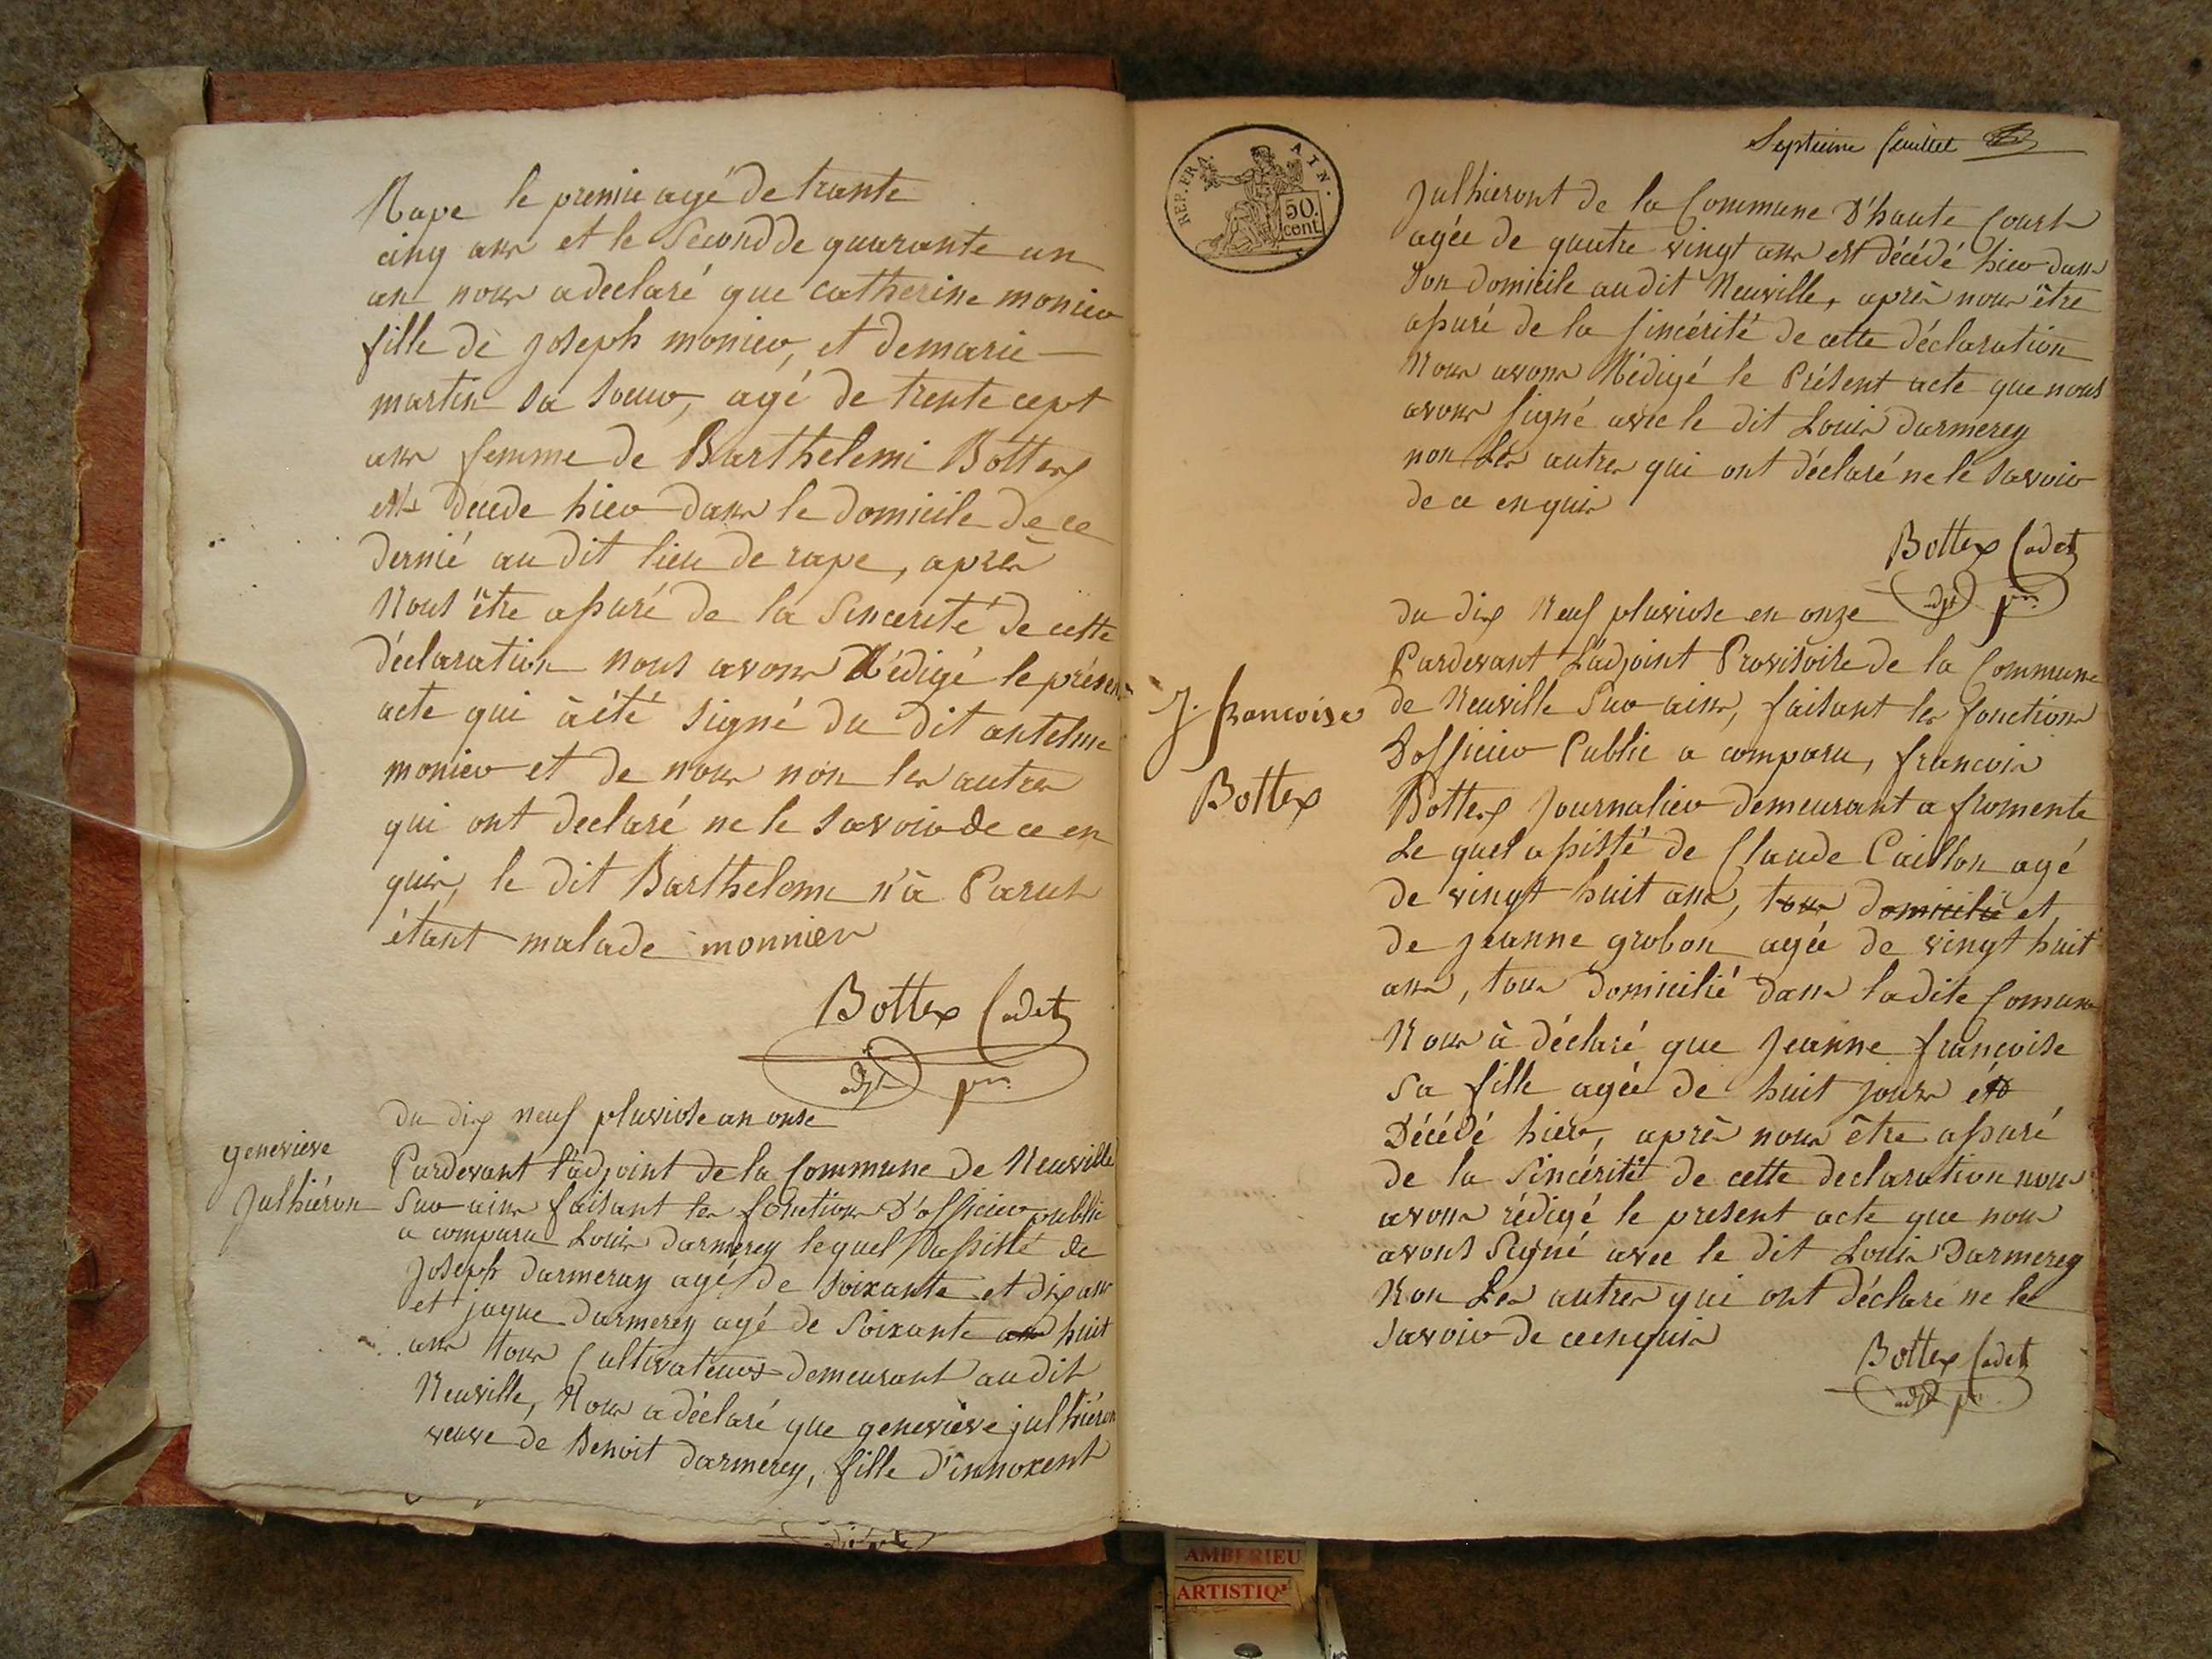 Rape le premié agé de trante
cinq ans et le Second de quarante un
an nous a declaré que catherine monier
fille de joseph monier, et de marie
martin sa soeur, agé de trente cept
ans femme de Barthelemi Bottex
est decede hier dans le domicile de ce
dernié au dit lieu de rape, après
Nous être assuré de la Sincerité de cette
déclaration nous avons Rédigé le présent
acte qui à été signé du dit antelme
monier et de nous non les autres
qui ont declaré ne le savoir de ce en
quis, le dit Barthelemi n'à Parut
étant malade monnier
Bottex Cadet
adjt pre.
du dix neuf pluviose an onse
genevieve
Julhiéron
Pardevant l'adjoint de la Commune de Neuville
Sur ains faisant les fonctions D'officier public
a comparu Louis Darmerey lequel assisté de
Joseph Darmeray agé de soixante et dix ans
et jaque Darmerey agé de Soixante ans huit
ans tous Cultivateurs demeurant au dit
Neuville, Nous a déclaré que genevieve julhiéron
veuve de Benoit Darmerey, fille d'innoxent
REP. FRA. 50 cent. AIN.
Septieme feuillet
Julhieront de la Commune D'haute Court
agée de quatre vingt ans est décédé hier dans
son domicile au dit Neuville, après nous être
assuré de la sincérité de cette déclaration
Nous avons Rédigé le Présent acte que nous
avons signé avec le dit Louis Darmerey
non Les autres qui ont déclaré ne le savoir
de ce enquis
Bottex Cadet
adjt pre.
du dix Neuf pluviose en onze
J. francoise
Bottex
Pardevant L'adjoint Provisoire de la Commune
de Neuville Sur ains, faisant les fonctions
D'officier Public a comparu, francois
Bottex Journalier demeurant a fromente
Le quel assisté de Claude Caillon agé
de vingt huit ans, tous domicilié et
de jeanne grobon agée de vingt huit
ans, tous domicilié dans la dite Comune
Nous à déclaré que Jeanne francoise
sa fille agée de huit jours ét
Décédé hier, après nous être assuré
de la Sincérité de cette declaration nous
avons rédigé le present acte que nous
avons Signé avec le dit Louis Darmerey
Non Les autres qui ont déclaré ne le
savoir de ce enquis
Bottex Cadet
adjt pr.
AMBERIEU
ARTISTIQ